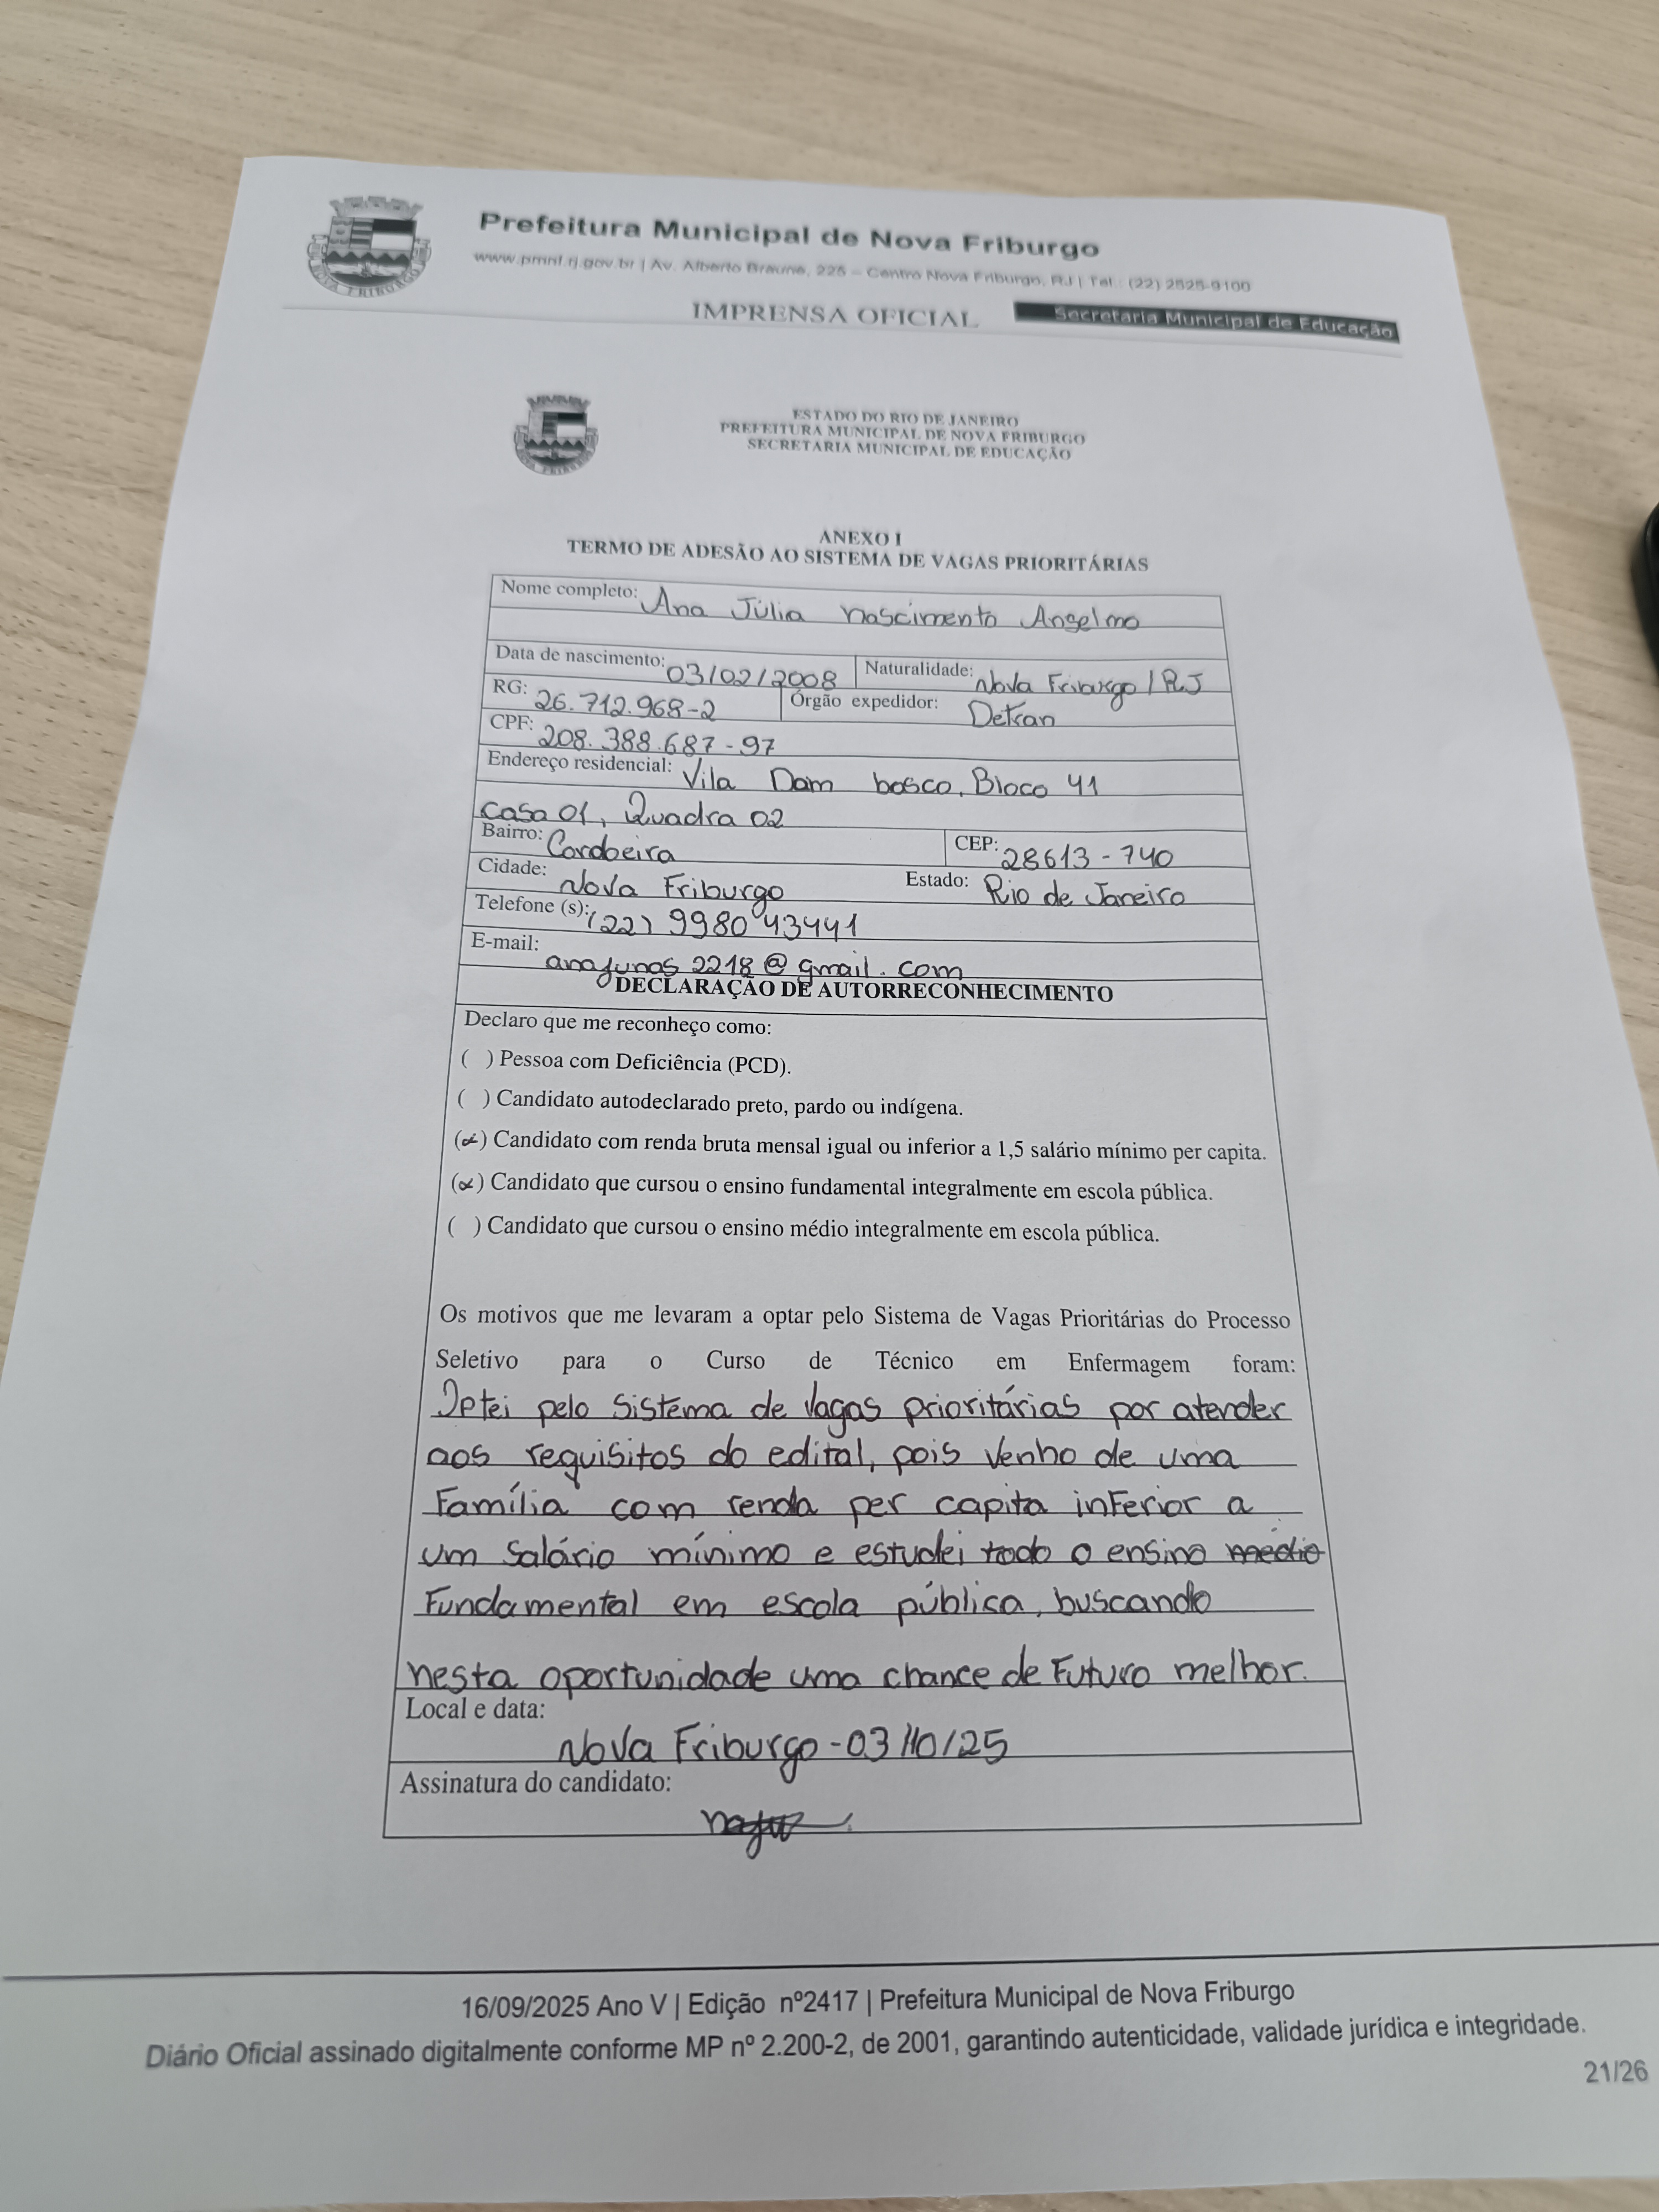 Prefeitura Municipal de Nova Friburgo
www.pmnf.rj.gov.br | Av. Alberto Braune, 225 – Centro Nova Friburgo, RJ | Tel.: (22) 2525-9100
IMPRENSA OFICIAL
Secretaria Municipal de Educação
NOVA FRIBURGO
ESTADO DO RIO DE JANEIRO
PREFEITURA MUNICIPAL DE NOVA FRIBURGO
SECRETARIA MUNICIPAL DE EDUCAÇÃO
ANEXO I
TERMO DE ADESÃO AO SISTEMA DE VAGAS PRIORITÁRIAS
Nome completo: Ana Júlia nascimento Anselmo
Data de nascimento: 03/02/2008 Naturalidade: Nova Friburgo / RJ
RG: 26.712.968-2 Órgão expedidor: Detran
CPF: 208.388.687-97
Endereço residencial: Vila Dom bosco, Bloco 41
casa 01, Quadra 02
Bairro: Cordoeira CEP: 28613-740
Cidade: Nova Friburgo Estado: Rio de Janeiro
Telefone (s): (22) 998043441
E-mail: anajunas2218@gmail.com
DECLARAÇÃO DE AUTORRECONHECIMENTO
Declaro que me reconheço como:
( ) Pessoa com Deficiência (PCD).
( ) Candidato autodeclarado preto, pardo ou indígena.
(x) Candidato com renda bruta mensal igual ou inferior a 1,5 salário mínimo per capita.
(x) Candidato que cursou o ensino fundamental integralmente em escola pública.
( ) Candidato que cursou o ensino médio integralmente em escola pública.
Os motivos que me levaram a optar pelo Sistema de Vagas Prioritárias do Processo
Seletivo para o Curso de Técnico em Enfermagem foram:
Optei pelo sistema de vagas prioritárias por atender
aos requisitos do edital, pois venho de uma
Família com renda per capita inferior a
um salário mínimo e estudei todo o ensino médio
Fundamental em escola pública, buscando
nesta oportunidade uma chance de Futuro melhor.
Local e data:
Nova Friburgo - 03/10/25
Assinatura do candidato:
16/09/2025 Ano V | Edição nº2417 | Prefeitura Municipal de Nova Friburgo
Diário Oficial assinado digitalmente conforme MP nº 2.200-2, de 2001, garantindo autenticidade, validade jurídica e integridade.
21/26